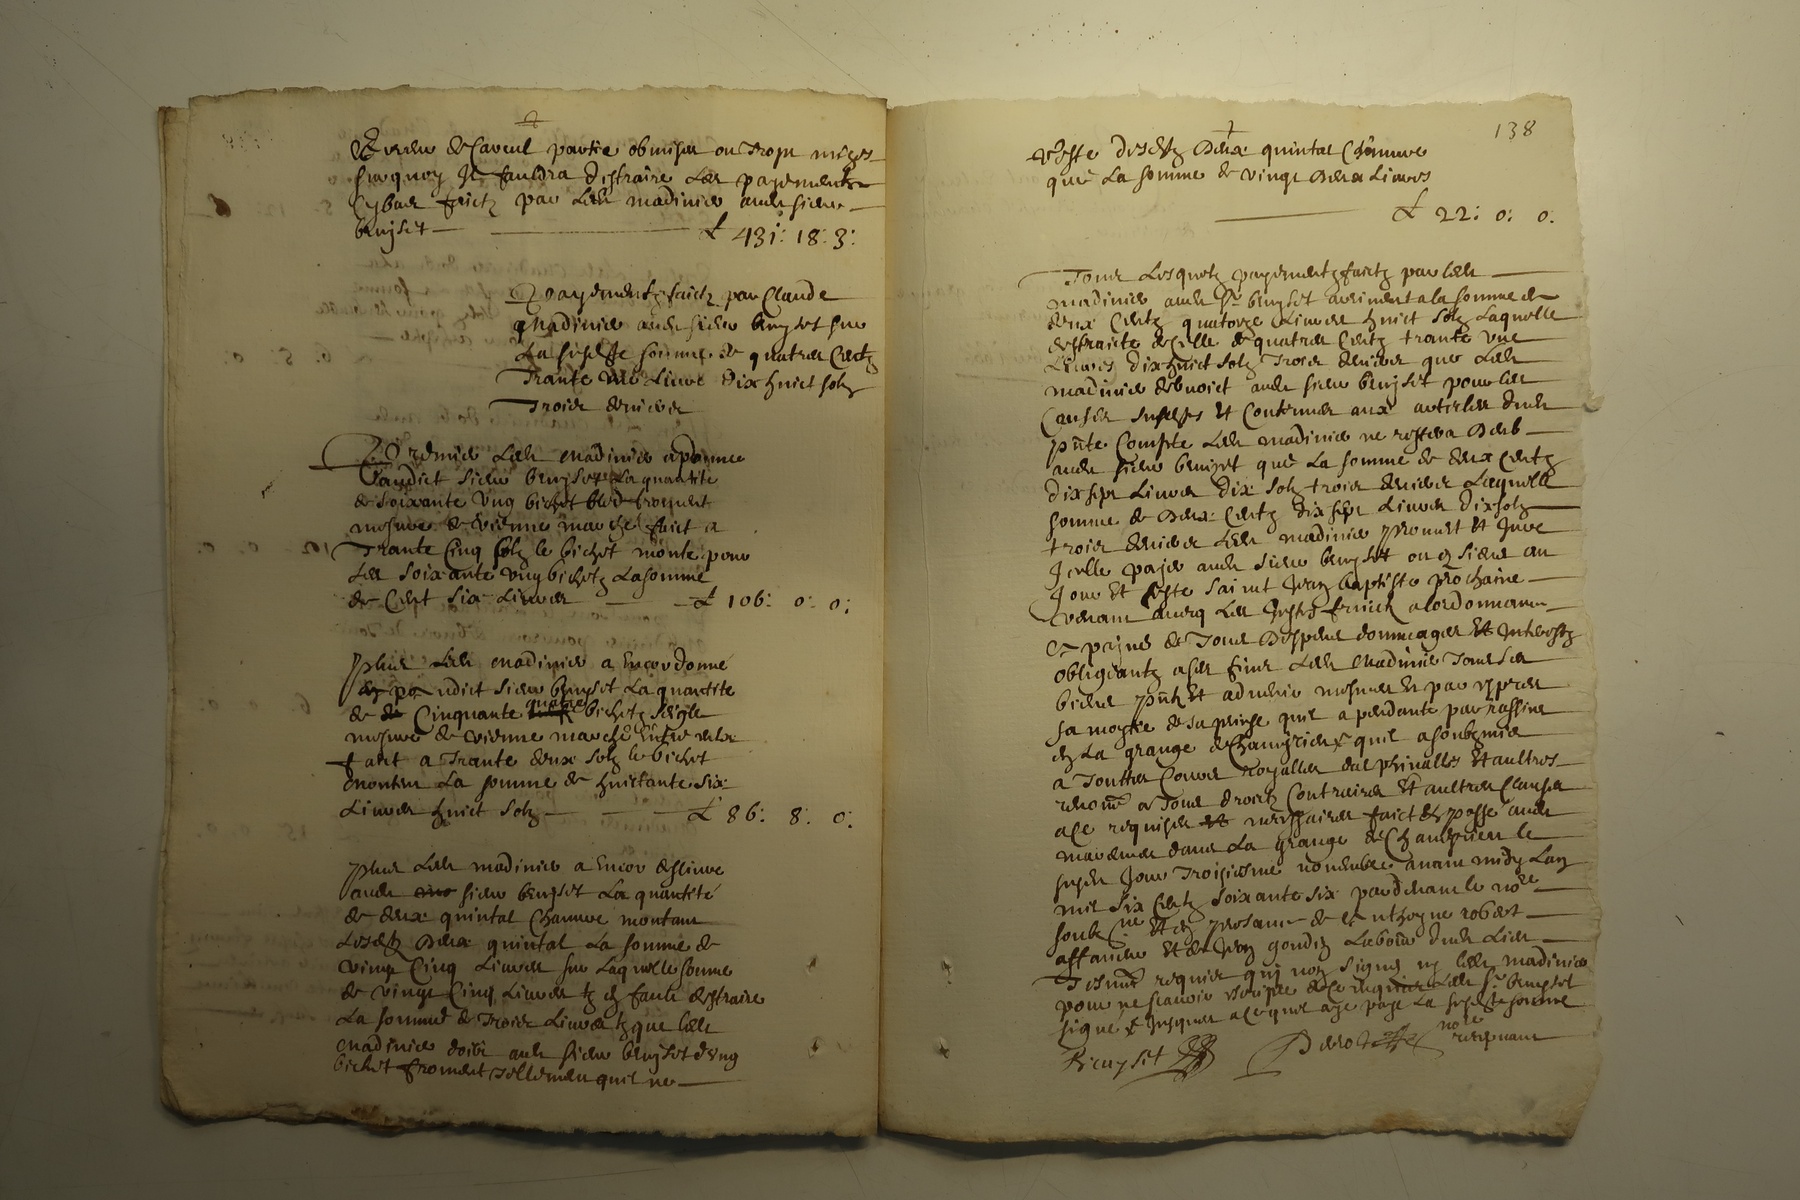 Erreur de Caveul partie obmises ou trop mises
surquoy Il fauldra distraire Les payements
Cybas faictz par Ledt madinier audt sieur
bruyset £ 431: 18: 3:
Payementz faictz par Claude
Madinier audt sieur bruyset sur
La susdte somme de quattres Centz
Trante une Livre dix huict solz
Trois deniers
Premier Ledt madinier a
audict sieur bruyset La quantité
de soixante ung bichet bled froment
mesure de vienne marché faict a
Trante Cinq solz le bichet monte pour
Les soixante ung bichetz La somme
de Cent six Livres £ 106: 0: 0:
Plus Ledt madinier a Encor donné
udict sieur bruyset La quantité
de Cinquante quatre bichetz seigle
mesure de vienne marché Entre eulx
faict a Trante deux solz le bichet
montent La somme de huictante six
Livres huict solz £ 86: 8: 0:
Plus Ledt madinier a Encor deslivre
audt sieur bruyset La quantité
de deux quintal Chanvre montant
Lesdtz deux quintal La somme de
vingt Cinq Livres sur Laquelle somme
de vingt Cinq Livres tz Il fault distraire
La somme de Trois Livres tz que ledt
madinier doibt audt sieur bruyset dung
bichet froment tellement quil ne
138
Reste desdtz deux quintal Chanvre
que La somme de vingt deux Livres
£ 22: 0: 0:
Tous Lesquelz payementz faictz par ledt
madinier audt Sr bruyset reviennent a la somme de
deux Centz quatorze Livres huict solz Laquelle
distraicte de Celle de quatres Centz trante une
Livres dix huict solz Trois deniers que Ledt
madinier debvoict audt sieur bruyset pour les
Causes susdtes Et Contenues aux articles dudt
pnt Compte Ledt madinier ne restera debt
audt sieur bruyset que La somme de deux Centz
dix sept Livres dix solz trois deniers Laquelle
somme de deux Centz dix sept Livres dix solz
trois deniers Ledt madinier Promet Et Jure
Icelle payer audt sieur bruyset ou es siens au
Jour Et feste Saint Jean baptiste prochaine
venant avecq Les Justes fruictz a lordonnance
a payne de Tous despens dommages Et Interestz
obligeantz a ses fins Ledt Madinier Tous ses
biens pntz Et advenir mesmes Et par expres
sa moytie de sa prinse quil a pendante par rassine
En La grange de quil a soubzmis
a Touttes Cours Royalles dalphinalles Et aultres
renonce a Tous droictz Contraires Et aultres Clauses
a Ce requises necessaires faict Et passé audt
dans La grange de Le
susdt Jour Troisiesme novembre avant midy Lan
mil six Centz soixante six pardevant le nore
soubzné Et En presance de anthoyne robert
affanier Et de Jean gondin Labour dudt Lieu
Tesmoins requis qui nont signé ny ledt madinier
pour ne scavoir escripre de Ce requis Ledt Sr bruyset
signé Et Jusques a Ce quil aye payé La susdte somme
Bruyset nore recepvant